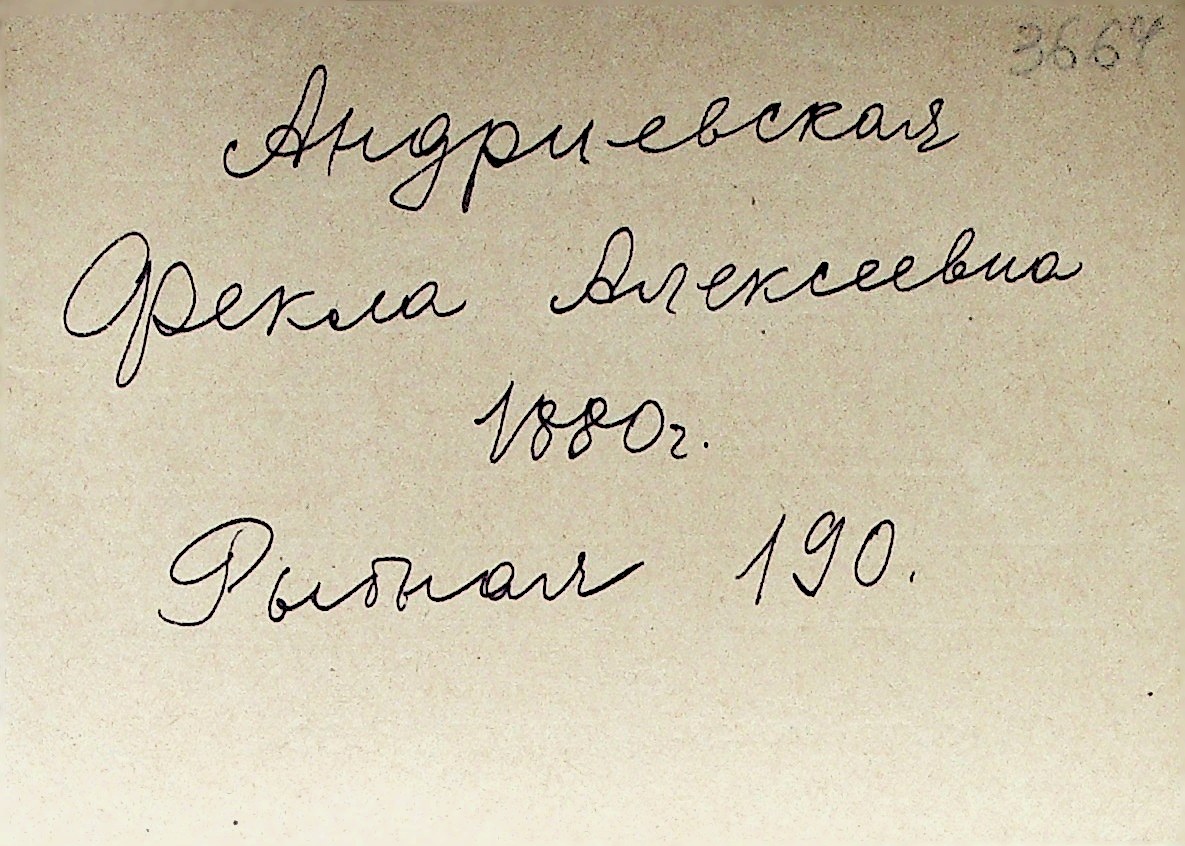 3664
Андриевская
Фекла Алексеевна
1880г.
Рыбная 190.